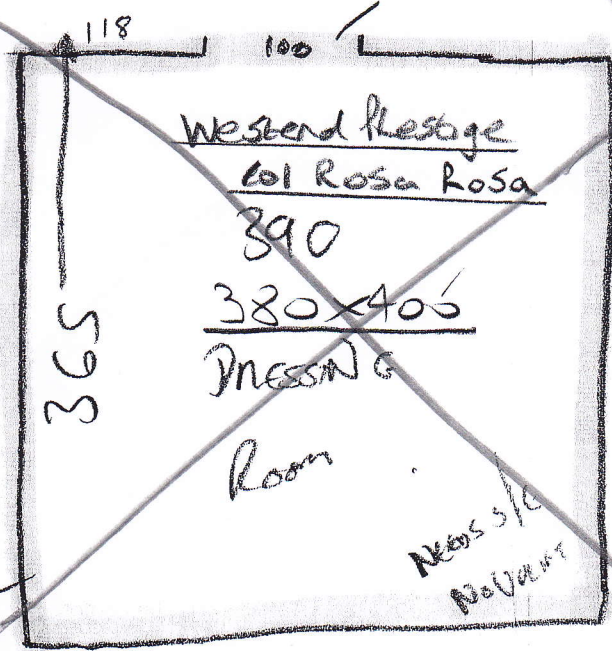 118
100
Westend Prestige
Col Rosa Rosa
390
380x400
365
DRESSING
Room
NEEDS s/c